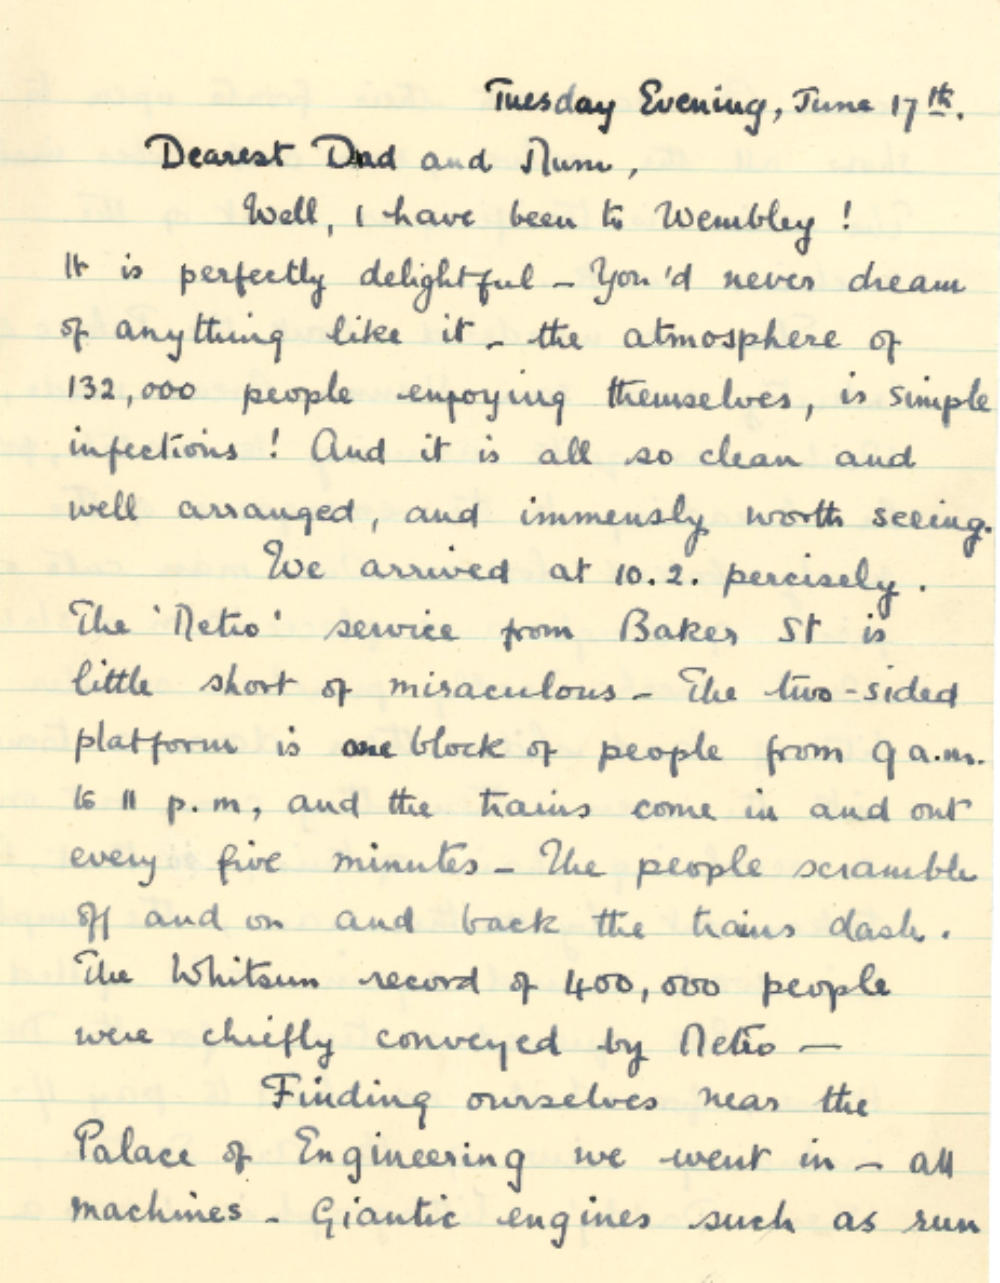 Tuesday Evening, June 17th.
Dearest Dad and Mum,
Well, I have been to Wembley!
It is perfectly delightful – You'd never dream
of anything like it – the atmosphere of
132,000 people enjoying themselves, is simple
infectious! And it is all so clean and
well arranged, and immensly worth seeing.
We arrived at 10.2. percisely.
The 'Metro' service from Baker St is
little short of miraculous – The two-sided
platform is one block of people from 9 a.m.
to 11 p.m, and the trains come in and out
every five minutes – The people scramble
off and on and back the trains dash.
The Whitsun record of 400,000 people
were chiefly conveyed by Metro —
Finding ourselves near the
Palace of Engineering we went in – all
machines – Giantic engines such as run